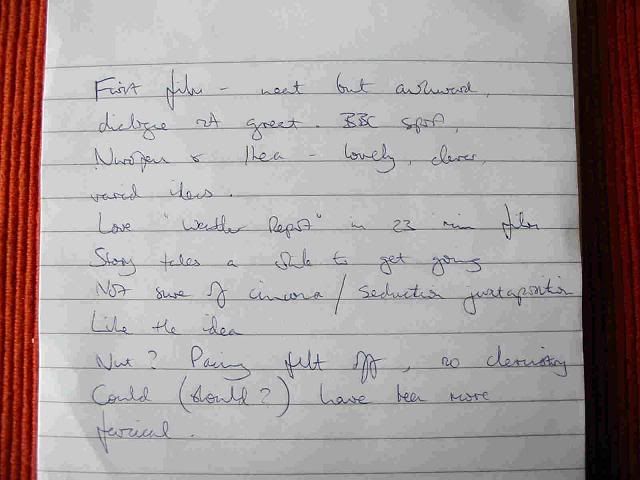 First film - neat but awkward,
dialogue not great. BBC spot,
& Ikea - lovely, clever,
varied ideas.
Love "Weather Report" in 23 min film
Story takes a while to get going
Not sure of cinema / seduction juxtaposition
Like the idea
Nut? Pacing felt off, no chemistry
Could (should?) have been more
farcical.